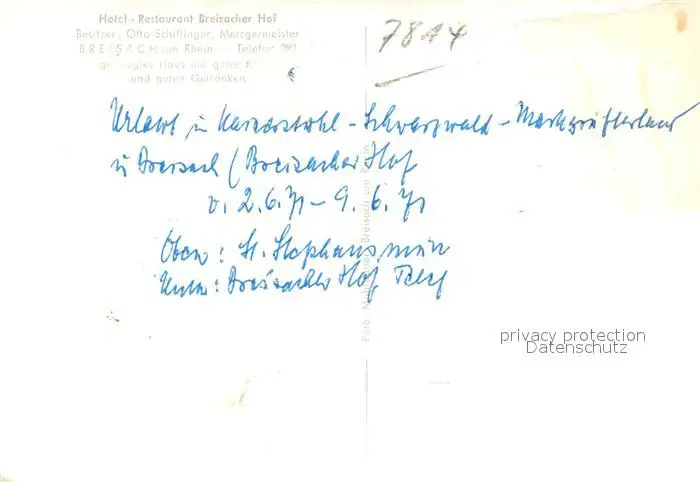 Hotel - Restaurant Breisacher Hof
Besitzer: Otto Schillinger, Metzgermeister
BREISACH am Rhein - Telefon
Haus mit guter
und guten Getränken
7814
Urlaub in Kaiserstuhl - Schwarzwald - Markgräflerland
in Breisach (Breisacher Hof
v. 2.6.71 - 9.6.71
Oben: St. Stephansmün
Unten: Breisacher Hof
Foto Breisach am Rhein
privacy protection
Datenschutz